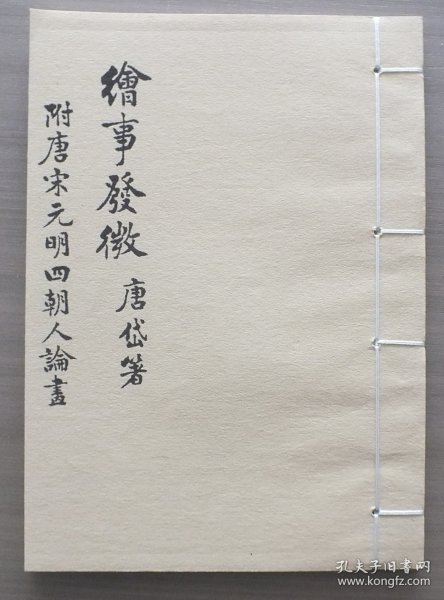 繪事發微 唐岱箸
附唐宋元明四朝人論畫
孔夫子旧书网
www.kongfz.com